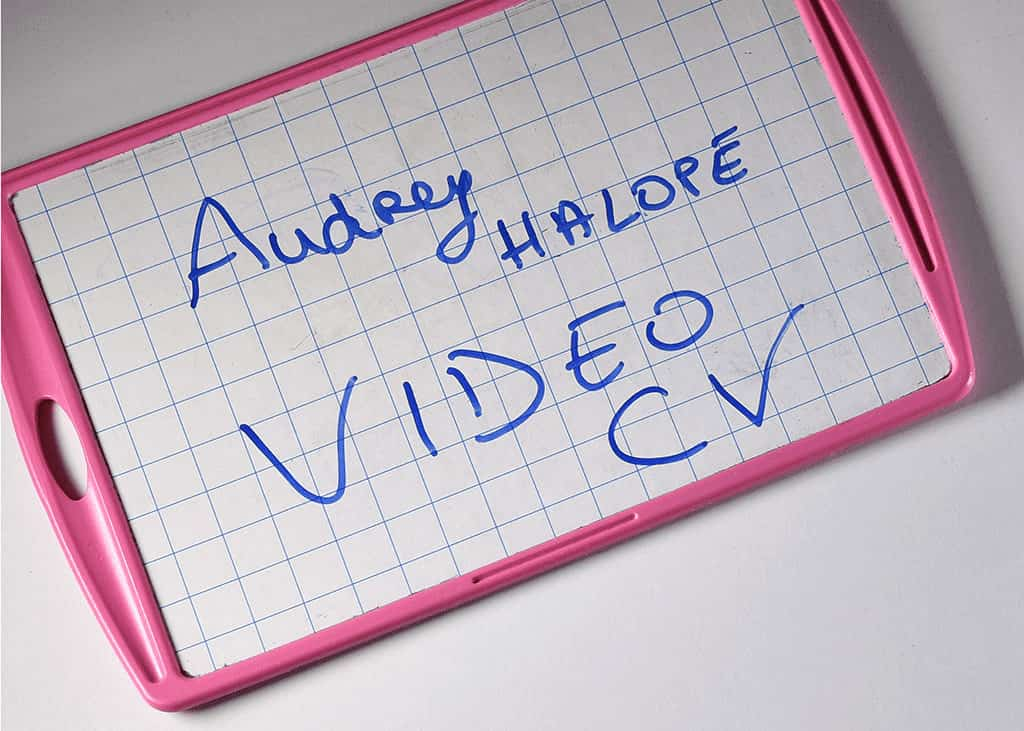 Audrey HALOPÉ
VIDEO
CV